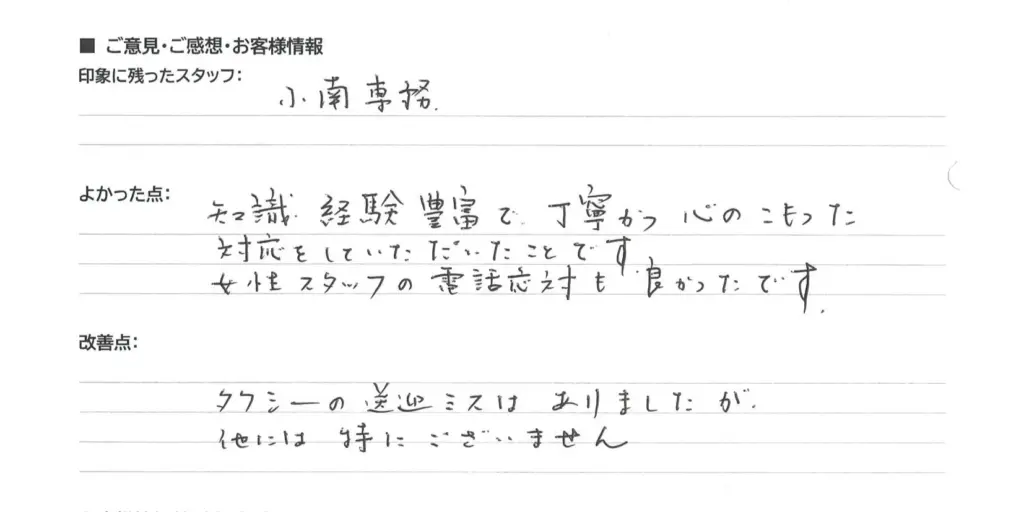 ■ ご意見・ご感想・お客様情報
印象に残ったスタッフ:
小南専務.
よかった点:
知識.経験豊富で、丁寧かつ心のこもった
対応をしていただいたことです
女性スタッフの電話応対も良かったです.
改善点:
タクシーの送迎ミスはありましたが.
他には特にございません